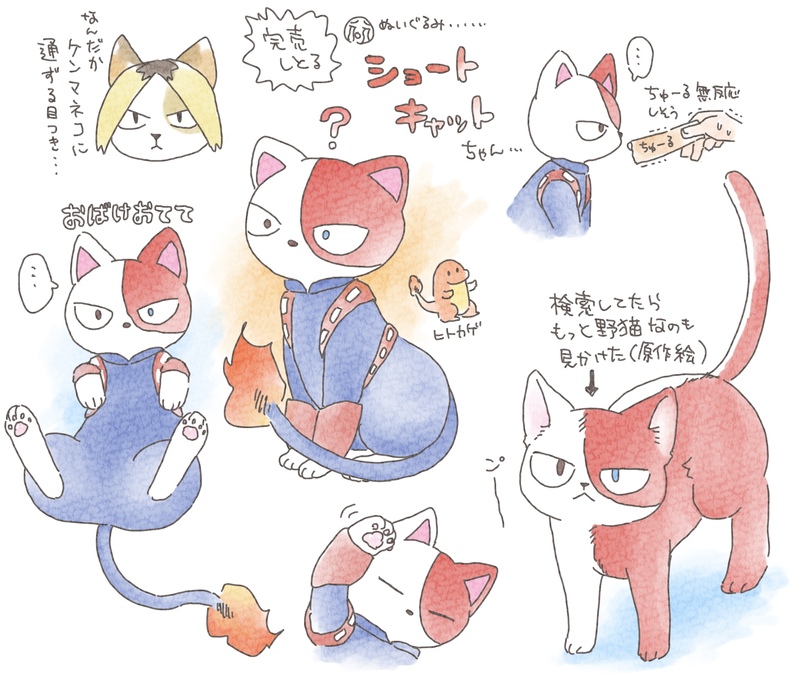 なんだか
ケンマネコに
通ずる目つき…
完売
しとる
ぬいぐるみ……
ショート
キャット
ちゃん…
?
…
ちゅーる無反応
しそう
ちゅーる
おばけおてて
…
ヒトカゲ
検索してたら
もっと野猫なのも
見かけた(原作絵)
ピ